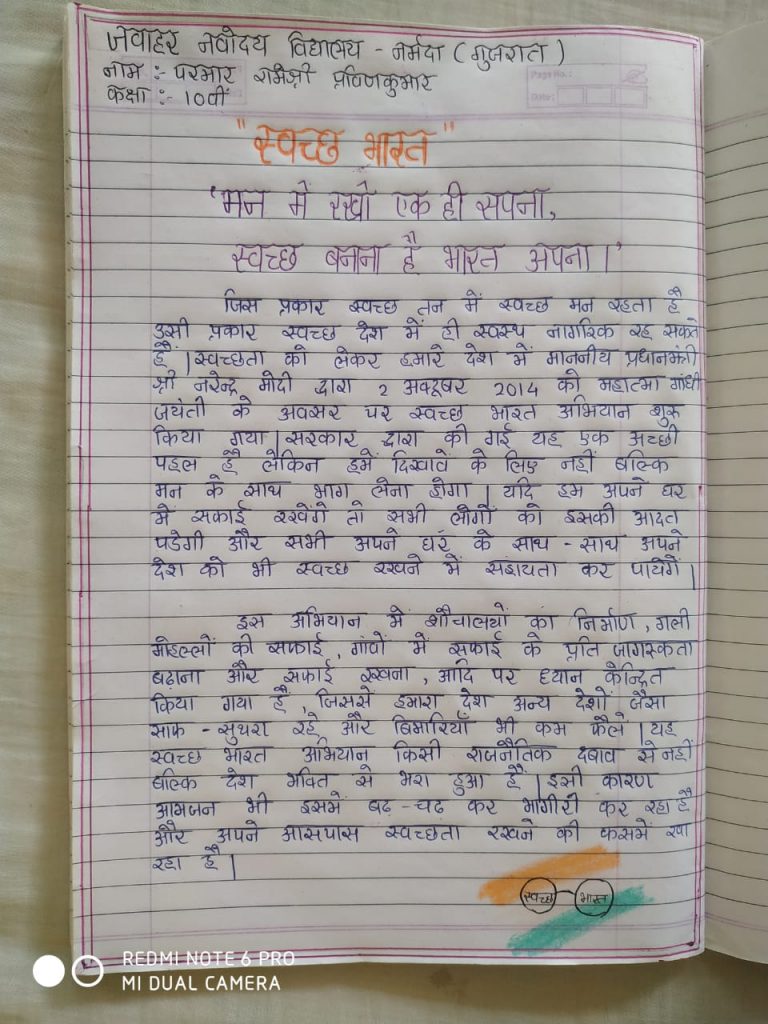 जवाहर नवोदय विद्यालय - नर्मदा ( गुजरात )
नाम :- परमार प्रविणकुमार
कक्षा :- 10वीं
Page No.:
Date:
"स्वच्छ भारत"
'मन में रखो एक ही सपना,
स्वच्छ बनाना है भारत अपना।'
जिस प्रकार स्वच्छ तन में स्वच्छ मन रहता है
उसी प्रकार स्वच्छ देश में ही स्वस्थ नागरिक रह सकते
हैं | स्वच्छता को लेकर हमारे देश में माननीय प्रधानमंत्री
श्री नरेन्द्र मोदी द्वारा 2 अक्टूबर 2014 को महात्मा गांधी
जयंती के अवसर पर स्वच्छ भारत अभियान शुरू
किया गया | सरकार द्वारा की गई यह एक अच्छी
पहल है लेकिन हमें दिखावें के लिए नहीं बल्कि
मन के साथ भाग लेना होगा | यदि हम अपने घर
में सफाई रखेंगे तो सभी लोगों को इसकी आदत
पडेगी और सभी अपने घर के साथ - साथ अपने
देश को भी स्वच्छ रखने में सहायता कर पायेंगें |
इस अभियान में शौचालयों का निर्माण , गली
मोहल्लों की सफाई , गांवों में सफाई के प्रति जागरूकता
बढ़ाना और सफाई रखना , आदि पर ध्यान केन्द्रित
किया गया है , जिससे हमारा देश अन्य देशों जैसा
साफ - सुथरा रहे और बिमारियाँ भी कम फैले | यह
स्वच्छ भारत अभियान किसी राजनैतिक दबाव से नहीं
बल्कि देश भक्ति से भरा हुआ हैं | इसी कारण
आमजन भी इसमें बढ़ - चढ़ कर भागीरी कर रहा है
और अपने आसपास स्वच्छता रखने की कसमें खा
रहा है |
स्वच्छ भारत
REDMI NOTE 6 PRO
MI DUAL CAMERA